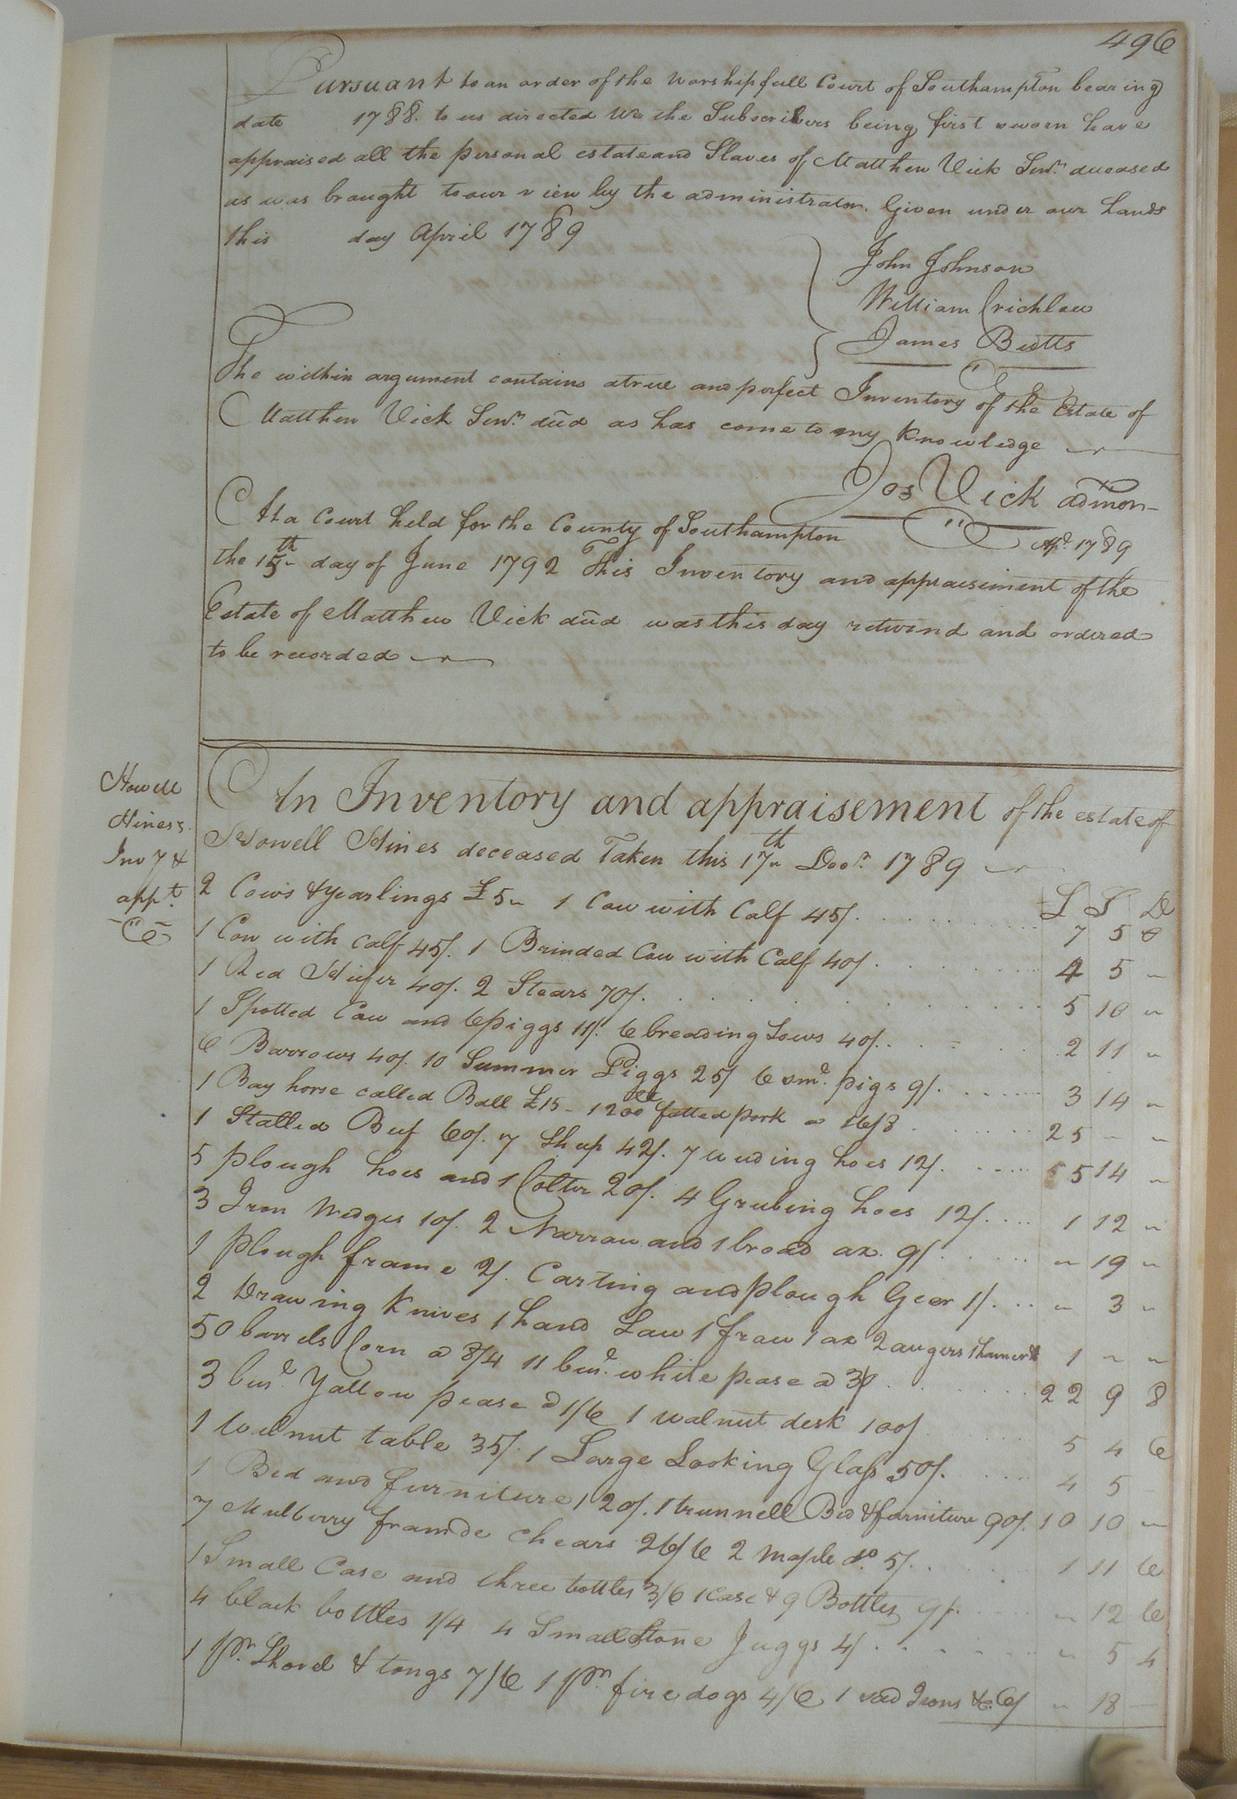 496
Pursuant to an order of the worshipfull Court of Southampton bearing
date 1788. to us directed We the Subscribers being first sworn have
appraised all the personal estate and Slaves of Matthew Vick Senr. deceased
as was brought to our view by the administrator. Given under our hands
this day April 1789
John Johnson
William Crichlow
James Butts
The within argument contains a true and perfect Inventory of the Estate of
Matthew Vick Senr. decd as has come to my Knowledge
Jos Vick admon
Apl. 1789
At a Court held for the County of Southampton
the 15th day of June 1792 This Inventory and appraisement of the
Estate of Matthew Vick decd was this day returnd and ordered
to be recorded
Howell
Hines's
Invy &
appt.
An Inventory and appraisement of the estate of
Howell Hines deceased Taken this 17th Decr. 1789
£ S D
2 Cows & yearlings £5 1 Cow with Calf 45/. 7 5 0
1 Cow with calf 45/. 1 Brinded Cow with Calf 40/. 4 5 "
1 Red Heifer 40/. 2 Stears 70/. 5 10 "
1 Spotted Cow and 6 piggs 11/. 6 breading Sows 40/. 2 11 "
6 Barrows 40/. 10 Summer Piggs 25/ 6 smd. pigs 9/. 3 14 "
1 Bay horse called Ball £15 - 1200 lb fatted pork @ 16/8 25 " "
1 Stalled Beef 60/. 7 Sheep 42/. 7 weeding hoes 12/. 5 14 "
5 plough hoes and 1 Colter 20/. 4 Grubing hoes 12/. 1 12 "
3 Iron Wedges 10/. 2 Narrow and 1 broad ax 9/. " 19 "
1 plough frame 2/. Carting and plough Geer 1/. " 3 "
2 Drawing Knives 1 hand Saw 1 fraw 1 ax 2 augers 1 hamer & 1 " "
50 barrels Corn @ 8/4 11 bus. while pease @ 3/ 22 9 8
3 bus. Yallow pease @ 1/6 1 walnut desk 100/ 5 4 6
1 Walnut table 35/. 1 Large Looking Glass 50/. 4 5
1 Bed and furniture 120/. 1 trunnell Bed & furniture 90/. 10 10 "
7 Mulberry framde chears 26/6 2 Maple do. 5/. 1 11 6
1 Small Case and three bottles 3/6 1 case & 9 Bottles 9/. " 12 6
4 black bottles 1/4 4 Small Stone Juggs 4/. " 5 4
1 pr. Shovel & tongs 7/6 1 pr. fire dogs 4/6 1 sad Irons &c. 6/ " 18